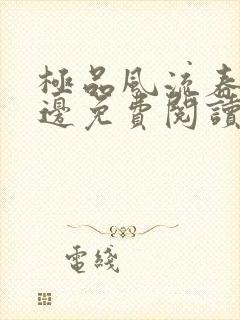 極品風流春
邊免費閱讀
電綫